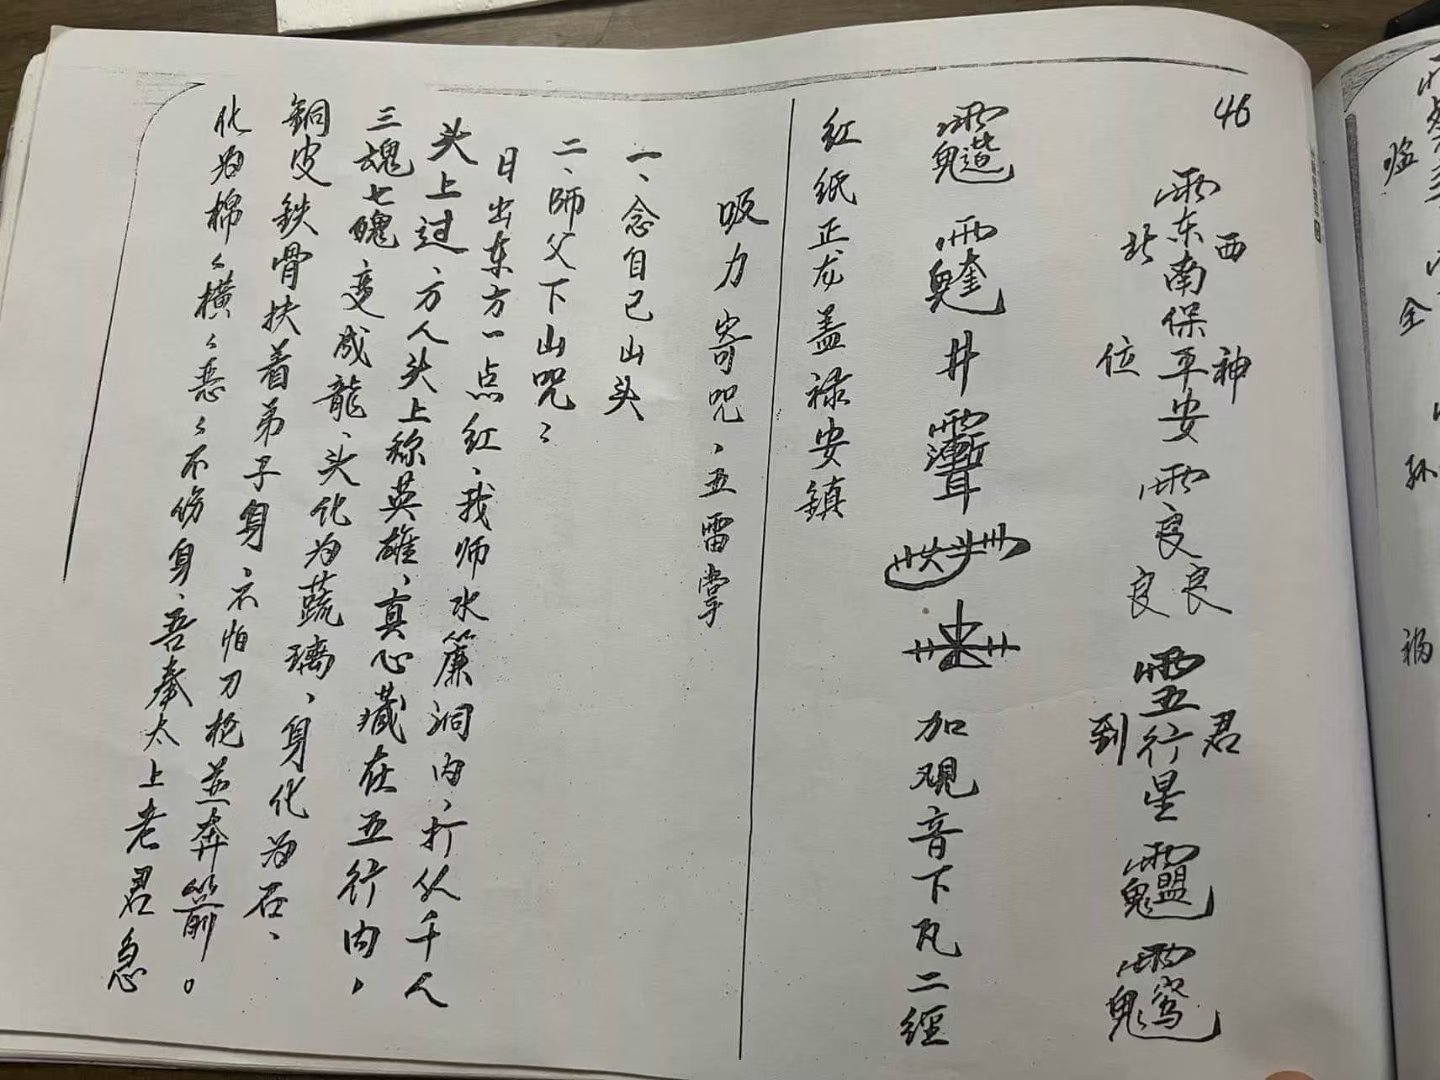 46
西 神 君
雨东南保平安 雨良良良 雨五行星
北 位 到
井
加观音下凡二經
红纸正龙盖禄安镇
吸力寄咒、五雷掌
一、念自己山头
二、师父下山咒:
日出东方一点红、我师水簾洞内、打从千人
头上过、方人头上称英雄、真心藏在五行内，
三魂七魄变成龍、头化为蔬璃、身化为石、
銅皮鉄骨扶着弟子身、不怕刀枪並奔箭。
化为棉々橫々恶々不伤身、吾奉太上老君急
临
全
孙
祸